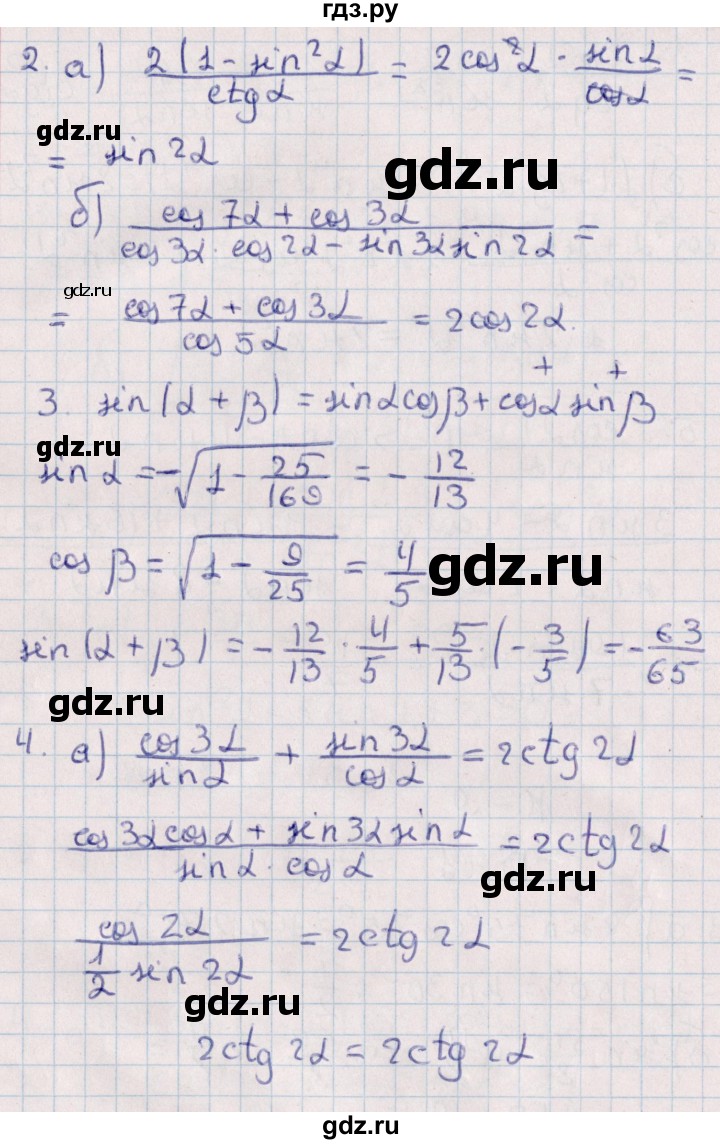 гдз.ру
2. а) 2(1 - sin²α)/ctgα = 2cos²α · sinα/cosα =
gdz.ru
gdz.ru
= sin2α
б) (cos7α + cos3α)/(cos3α · cos2α - sin3α sin2α) =
gdz.ru
= (cos7α + cos3α)/cos5α = 2cos2α.
gdz.ru
+ +
3. sin(α + β) = sinαcosβ + cosα sinβ
gdz.ru
sinα = -√(1 - 25/169) = - 12/13
cosβ = √(1 - 9/25) = 4/5
gdz.ru
sin(α + β) = - 12/13 · 4/5 + 5/13 · (- 3/5) = - 63/65
gdz.ru
4. а) cos3α/sinα + sin3α/cosα = 2ctg2α
gdz.ru
(cos3αcosα + sin3αsinα)/(sinα · cosα) = 2ctg2α
gdz.ru
cos2α/(1/2 sin2α) = 2ctg2α
gdz.ru
2ctg2α = 2ctg2α
gdz.ru